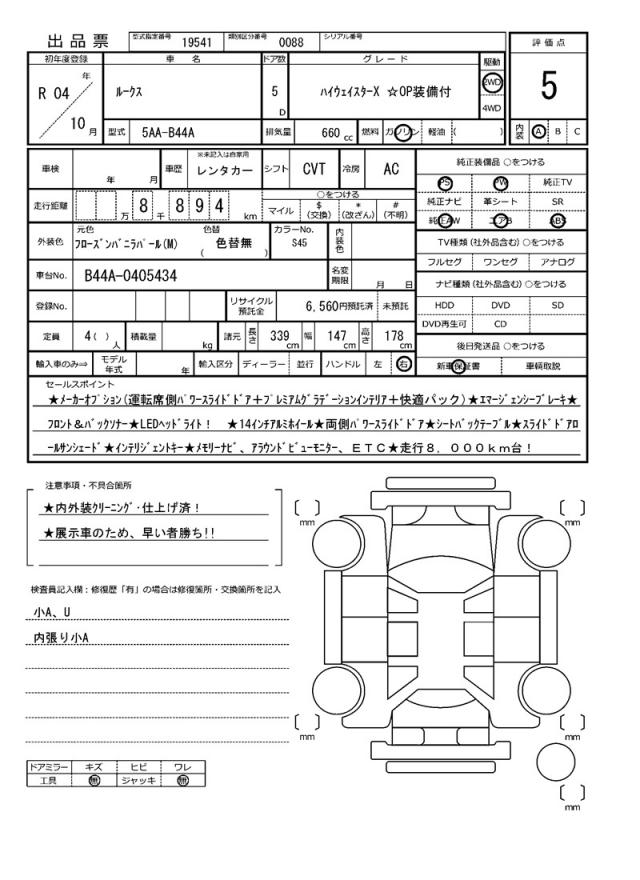 出品票 型式指定番号 19541 類別区分番号 0088 シリアル番号
評価点
5
内装 A B C
初年度登録 車名 ドア数 グレード 駆動
R 04 年 10 月 ルークス 5 D ハイウェイスターX ☆OP装備付 2WD 4WD
型式 5AA-B44A 排気量 660 cc 燃料 ガソリン 軽油 ( )
車検 年 月 車歴 ※未記入は自家用 レンタカー シフト CVT 冷房 AC
走行距離 万 8 千 8 9 4 km ○をつける マイル $ (交換) * (改ざん) # (不明)
外装色 元色 フローズンバニラパール(M) 色替 色替無 ( ) カラーNo. S45 内装色
車台No. B44A-0405434 名変期限 月 日
登録No. リサイクル預託金 6,560円預託済 未預託
定員 4( ) 人 積載量 kg 諸元 長さ 339 cm 幅 147 cm 高さ 178 cm
輸入車のみ⇒ モデル年式 年 輸入区分 ディーラー 並行 ハンドル 左 右
純正装備品 ○をつける
PS PW 純正TV
純正ナビ 革シート SR
純正AW エアB ABS
TV種類(社外品含む)○をつける
フルセグ ワンセグ アナログ
ナビ種類(社外品含む)○をつける
HDD DVD SD
DVD再生可 CD
後日発送品 ○をつける
新車保証書 車輌取説
セールスポイント
★メーカーオプション(運転席側パワースライドドア+プレミアムグラデーションインテリア+快適パック)★エマージェンシーブレーキ★
フロント&バックソナー★LEDヘッドライト! ★14インチアルミホイール★両側パワースライドドア★シートバックテーブル★スライドドアロ
ールサンシェード★インテリジェントキー★メモリーナビ、アラウンドビューモニター、ETC★走行8,000km台!
注意事項・不具合箇所
★内外装クリーニング・仕上げ済!
★展示車のため、早い者勝ち!!
検査員記入欄:修復歴「有」の場合は修復箇所・交換箇所を記入
小A、U
内張り小A
ドアミラー キズ ヒビ ワレ
工具 無 ジャッキ 無
mm
mm
mm
mm
mm